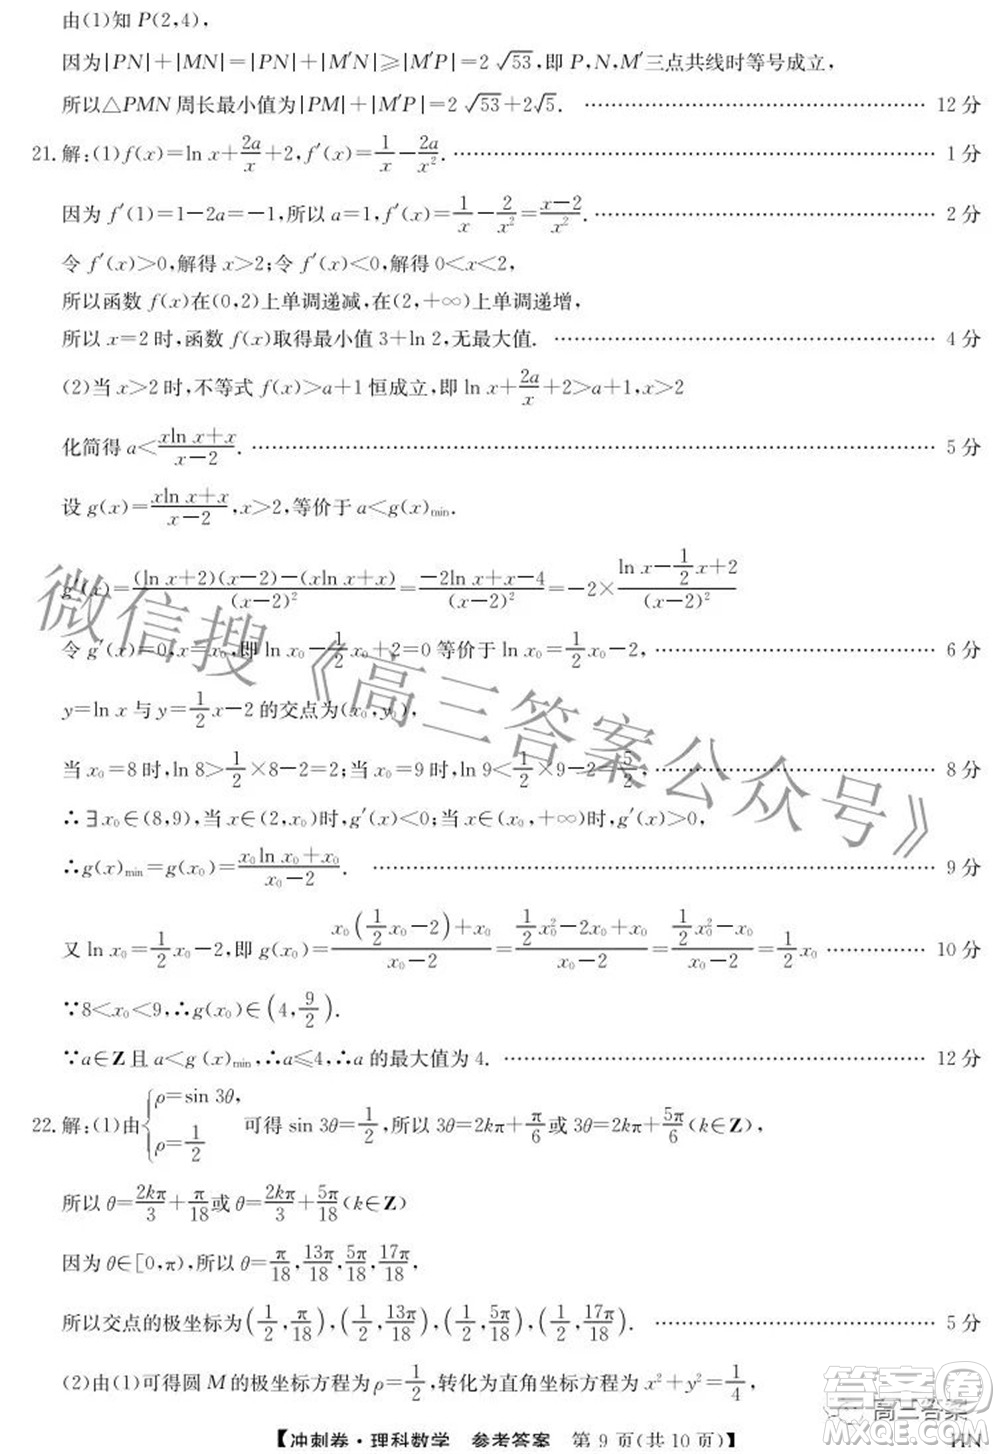 由(1)知 P(2,4),
因为|PN|+|MN|=|PN|+|M′N|≥|M′P|=2√53,即 P,N,M′三点共线时等号成立,
所以△PMN 周长最小值为|PM|+|M′P|=2√53+2√5. ………… 12 分
21. 解:(1)f(x)=ln x+2a/x+2,f′(x)=1/x−2a/x². ………… 1 分
因为 f′(1)=1−2a=−1,所以 a=1,f′(x)=1/x−2/x²=(x−2)/x². ………… 2 分
令 f′(x)>0,解得 x>2;令 f′(x)<0,解得 0<x<2,
所以函数 f(x)在(0,2)上单调递减,在(2,+∞)上单调递增,
所以 x=2 时,函数 f(x)取得最小值 3+ln 2,无最大值. ………… 4 分
(2)当 x>2 时,不等式 f(x)>a+1 恒成立,即 ln x+2a/x+2>a+1,x>2
化简得 a<(xln x+x)/(x−2). ………… 5 分
设 g(x)=(xln x+x)/(x−2),x>2,等价于 a<g(x)min.
g′(x)=((ln x+2)(x−2)−(xln x+x))/(x−2)²=(−2ln x+x−4)/(x−2)²=−2×(ln x−1/2x+2)/(x−2)²
令 g′(x)=0,x=x₀,即 ln x₀−1/2x₀+2=0 等价于 ln x₀=1/2x₀−2, ………… 6 分
y=ln x 与 y=1/2x−2 的交点为(x₀,y₀),
当 x₀=8 时,ln 8>1/2×8−2=2;当 x₀=9 时,ln 9<1/2×9−2=5/2, ………… 8 分
∴∃x₀∈(8,9),当 x∈(2,x₀)时,g′(x)<0;当 x∈(x₀,+∞)时,g′(x)>0,
∴g(x)min=g(x₀)=(x₀ln x₀+x₀)/(x₀−2). ………… 9 分
又 ln x₀=1/2x₀−2,即 g(x₀)=(x₀(1/2x₀−2)+x₀)/(x₀−2)=(1/2x₀²−2x₀+x₀)/(x₀−2)=(1/2x₀²−x₀)/(x₀−2)=1/2x₀ ………… 10 分
∵8<x₀<9,∴g(x₀)∈(4,9/2).
∵a∈Z 且 a<g (x)min,∴a≤4,∴a 的最大值为 4. ………… 12 分
22. 解:(1)由{ρ=sin 3θ, ρ=1/2 可得 sin 3θ=1/2,所以 3θ=2kπ+π/6或 3θ=2kπ+5π/6(k∈Z),
所以 θ=2kπ/3+π/18或 θ=2kπ/3+5π/18(k∈Z)
因为 θ∈[0,π),所以 θ=π/18,13π/18,5π/18,17π/18,
所以交点的极坐标为(1/2,π/18),(1/2,13π/18),(1/2,5π/18),(1/2,17π/18). ………… 5 分
(2)由(1)可得圆 M 的极坐标方程为 ρ=1/2,转化为直角坐标方程为 x²+y²=1/4,
【冲刺卷·理科数学 参考答案 第 9 页(共 10 页)】
HN
微信搜《高三答案公众号》
答案圈
高三答案